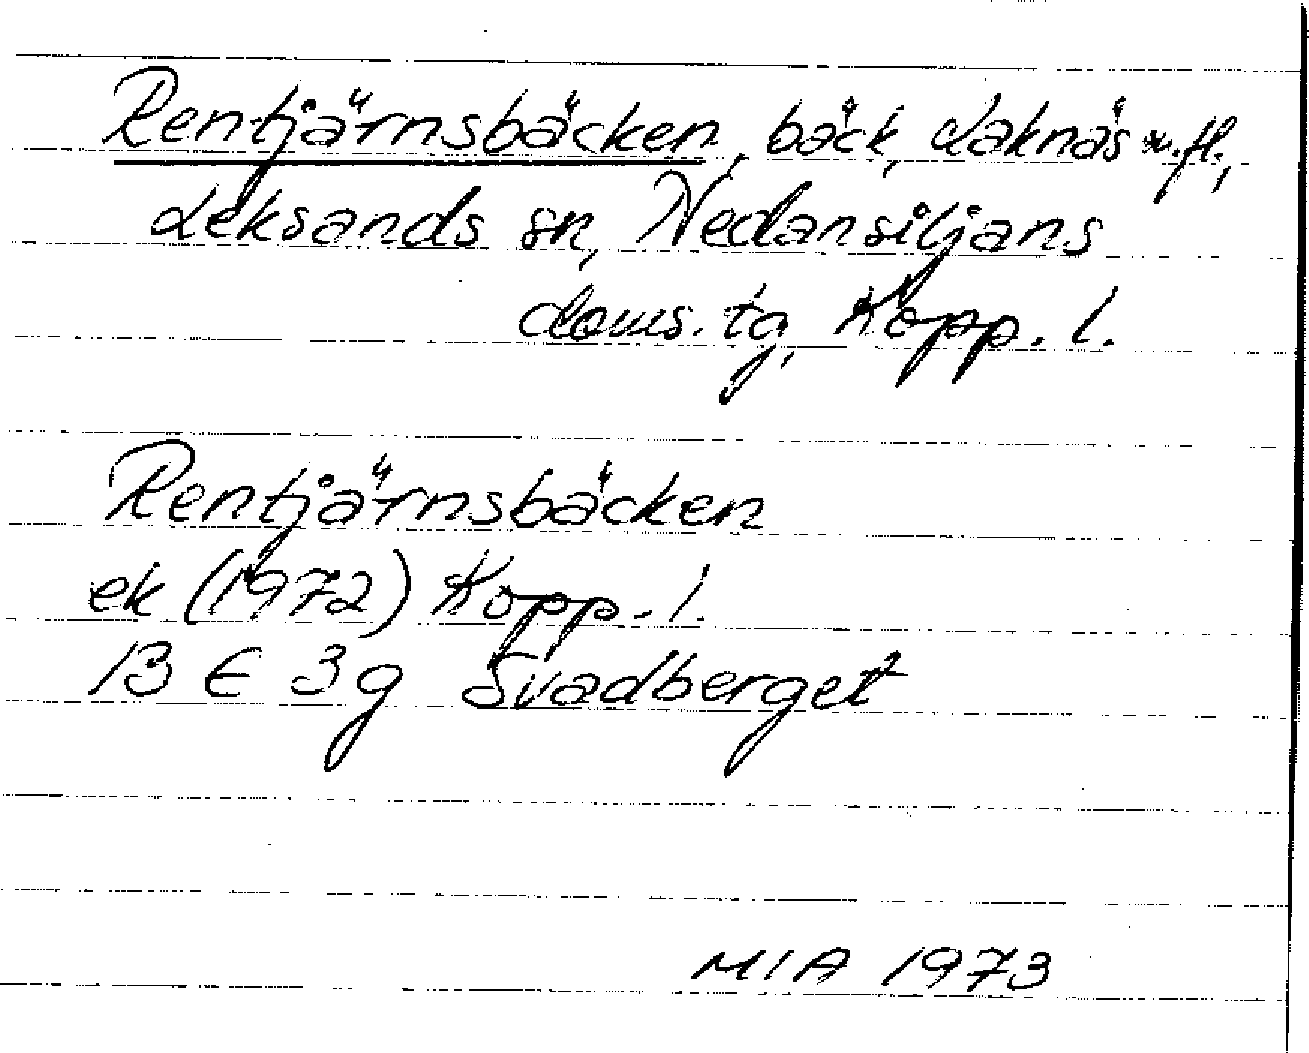 Rentjärnsbäcken, bäck, Laknäs m.fl.,
Leksands sn, Nedansiljans
doms. tg, Kopp. l.
Rentjärnsbäcken
ek (1972) Kopp. l.
13 E 3g Svadberget
MIA 1973